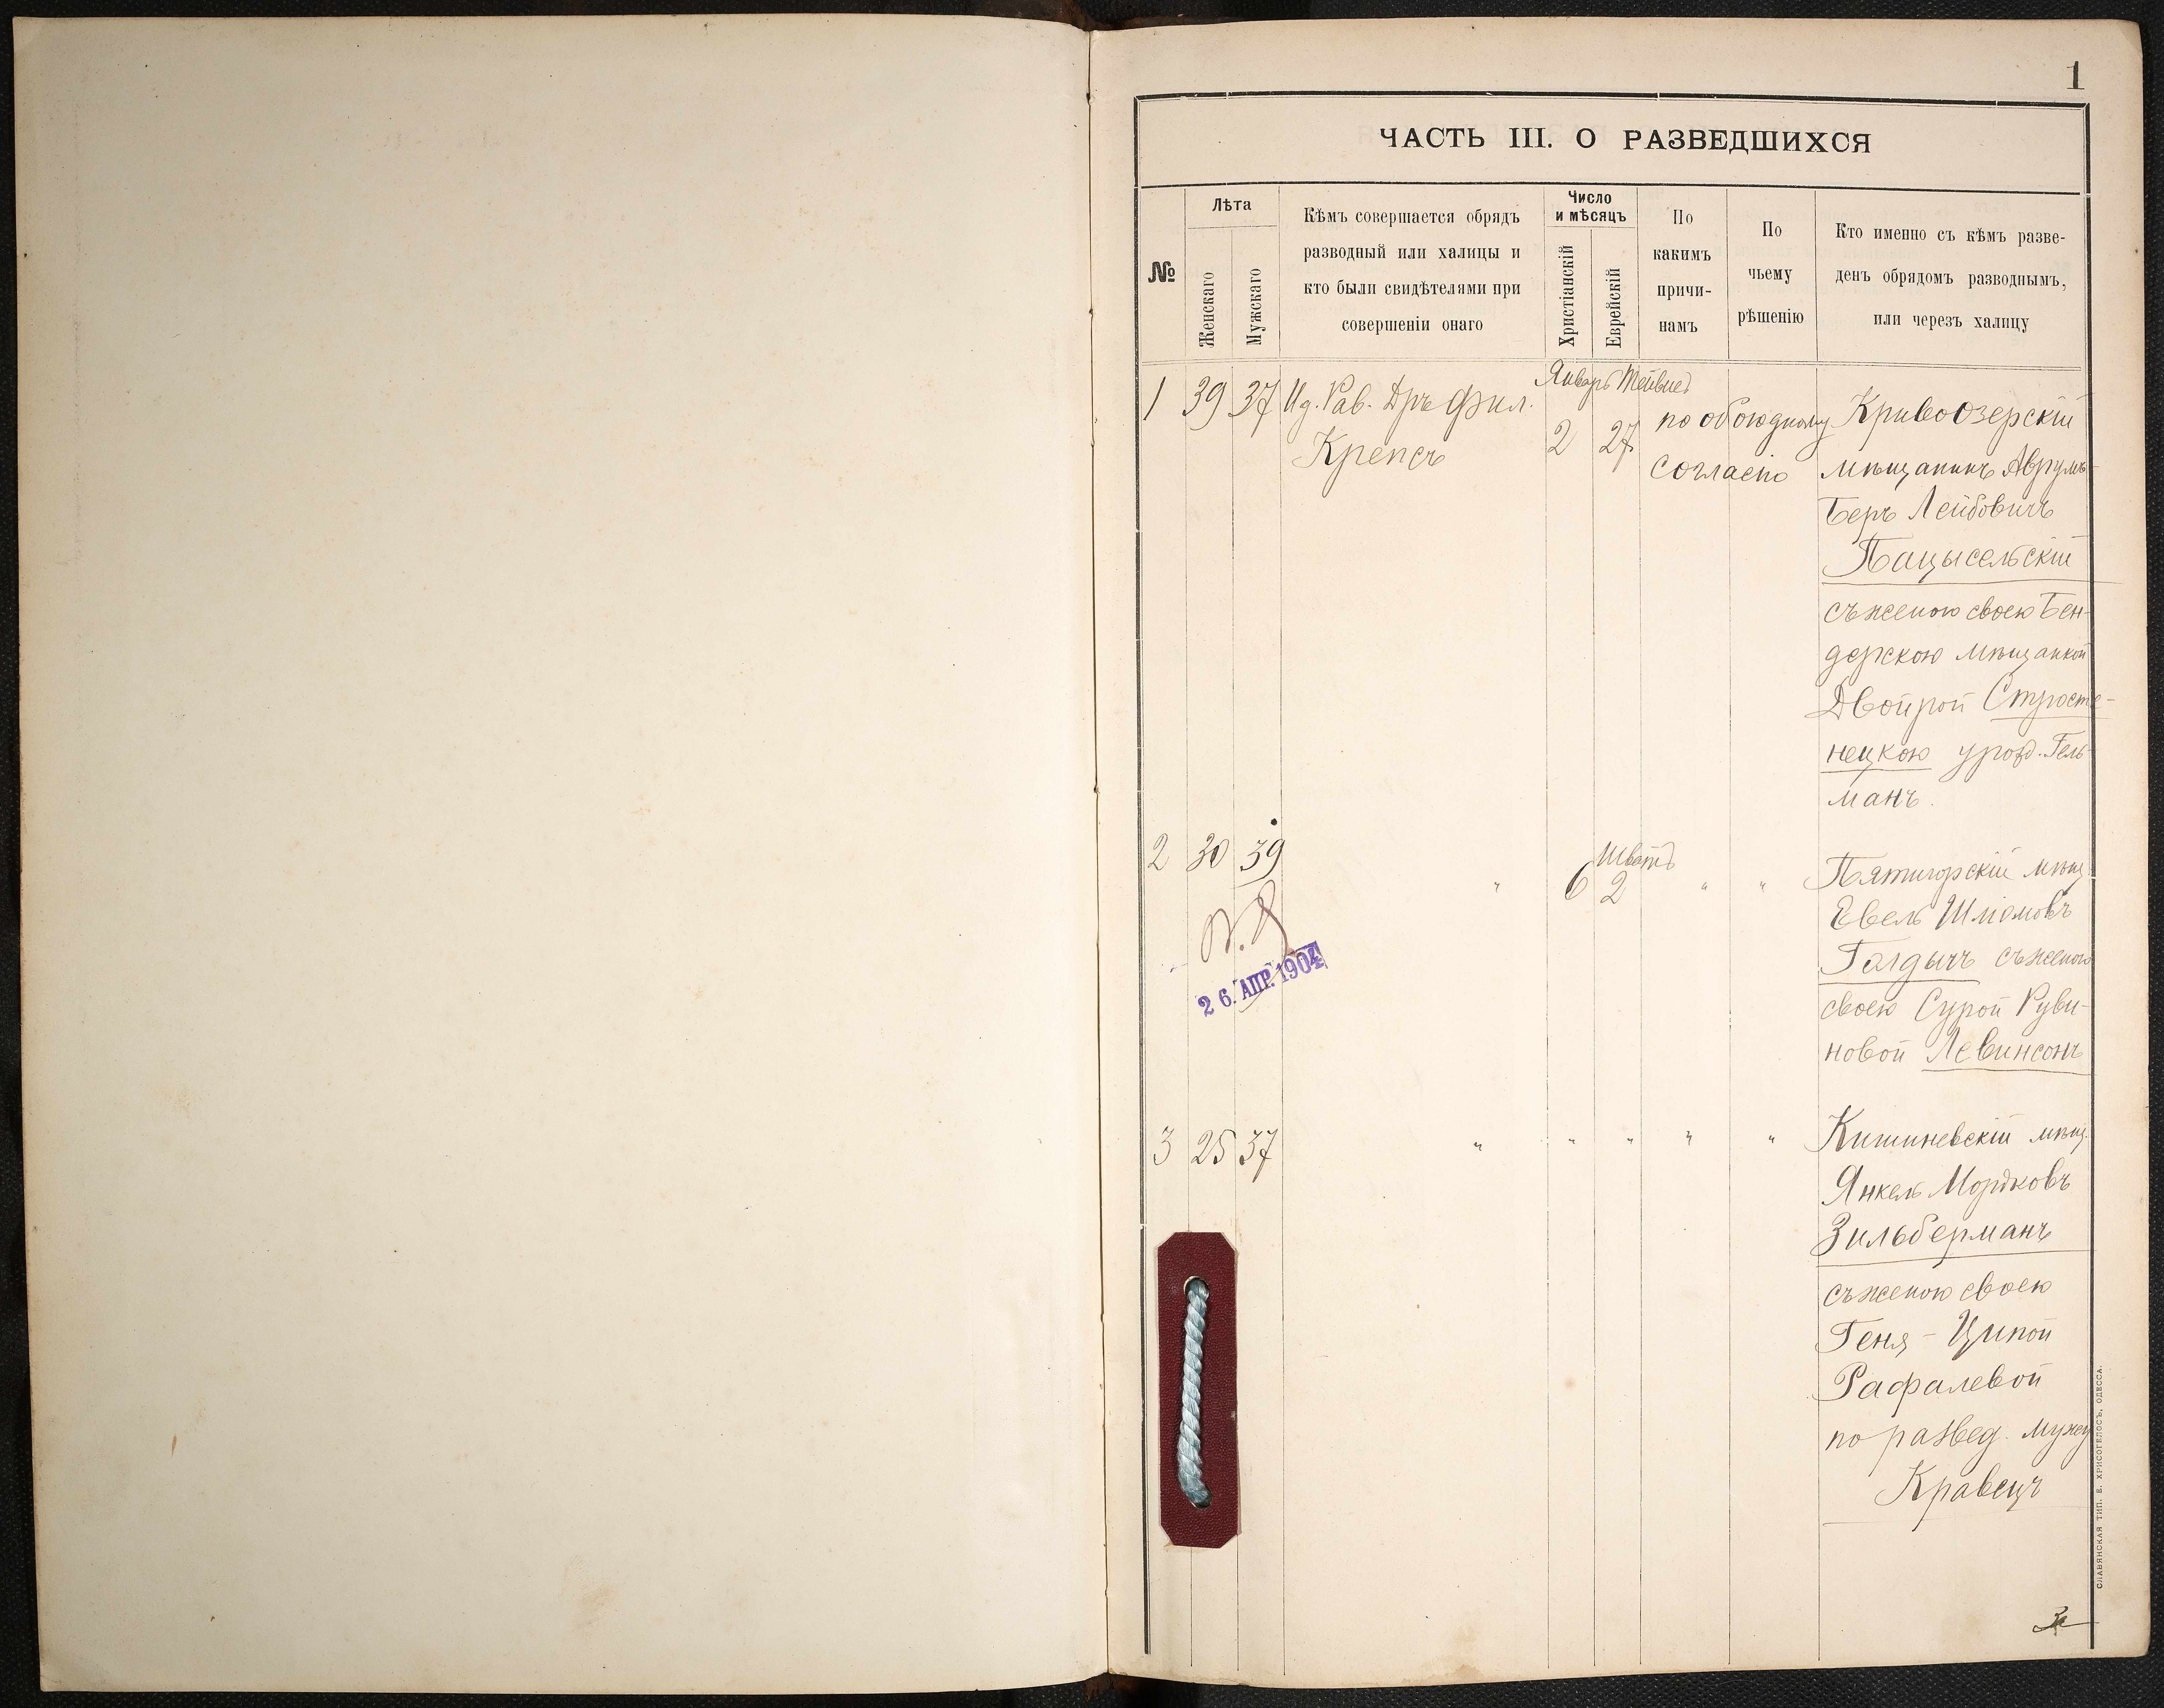 1
ЧАСТЬ III. О РАЗВЕДШИХСЯ
№
Лѣта
Женскаго
Мужскаго
Кѣмъ совершается обрядъ
разводный или халицы и
кто были свидѣтелями при
совершеніи онаго
Число
и мѣсяцъ
Христіанскій
Еврейскій
По
какимъ
причи-
намъ
По
чьему
рѣшенію
Кто именно съ кѣмъ разве-
денъ обрядомъ разводнымъ,
или черезъ халицу
1 39 37 Ид. Рав. Дръ Фил.
Крепсъ
Январь Тейвесъ
2 27
по обоюдному
согласію
Кривоозерскій
мѣщанинъ Аврумъ-
Беръ Лейбовичъ
Пацысельскій
съ женою своею Бен-
дерскою мѣщанкой
Двойрой Стросте-
нецкою урожд. Гель-
манъ.
2 30 39 " 6 Шватъ 2 " "
Пятигорскій мѣщ.
Евель Шліомовъ
Галдычъ съ женою
своею Сурой Руви-
новой Левинсонъ
26. АПР. 1904
3 25 37 " " " " "
Кишиневскій мѣщ.
Янкель Мордковъ
Зильберманъ
съ женою своею
Геня-Ципой
Рафалевой
по развед. мужу
Кравецъ
СЛАВЯНСКАЯ ТИП. Е. ХРИСОГЕЛОСЪ, ОДЕССА.